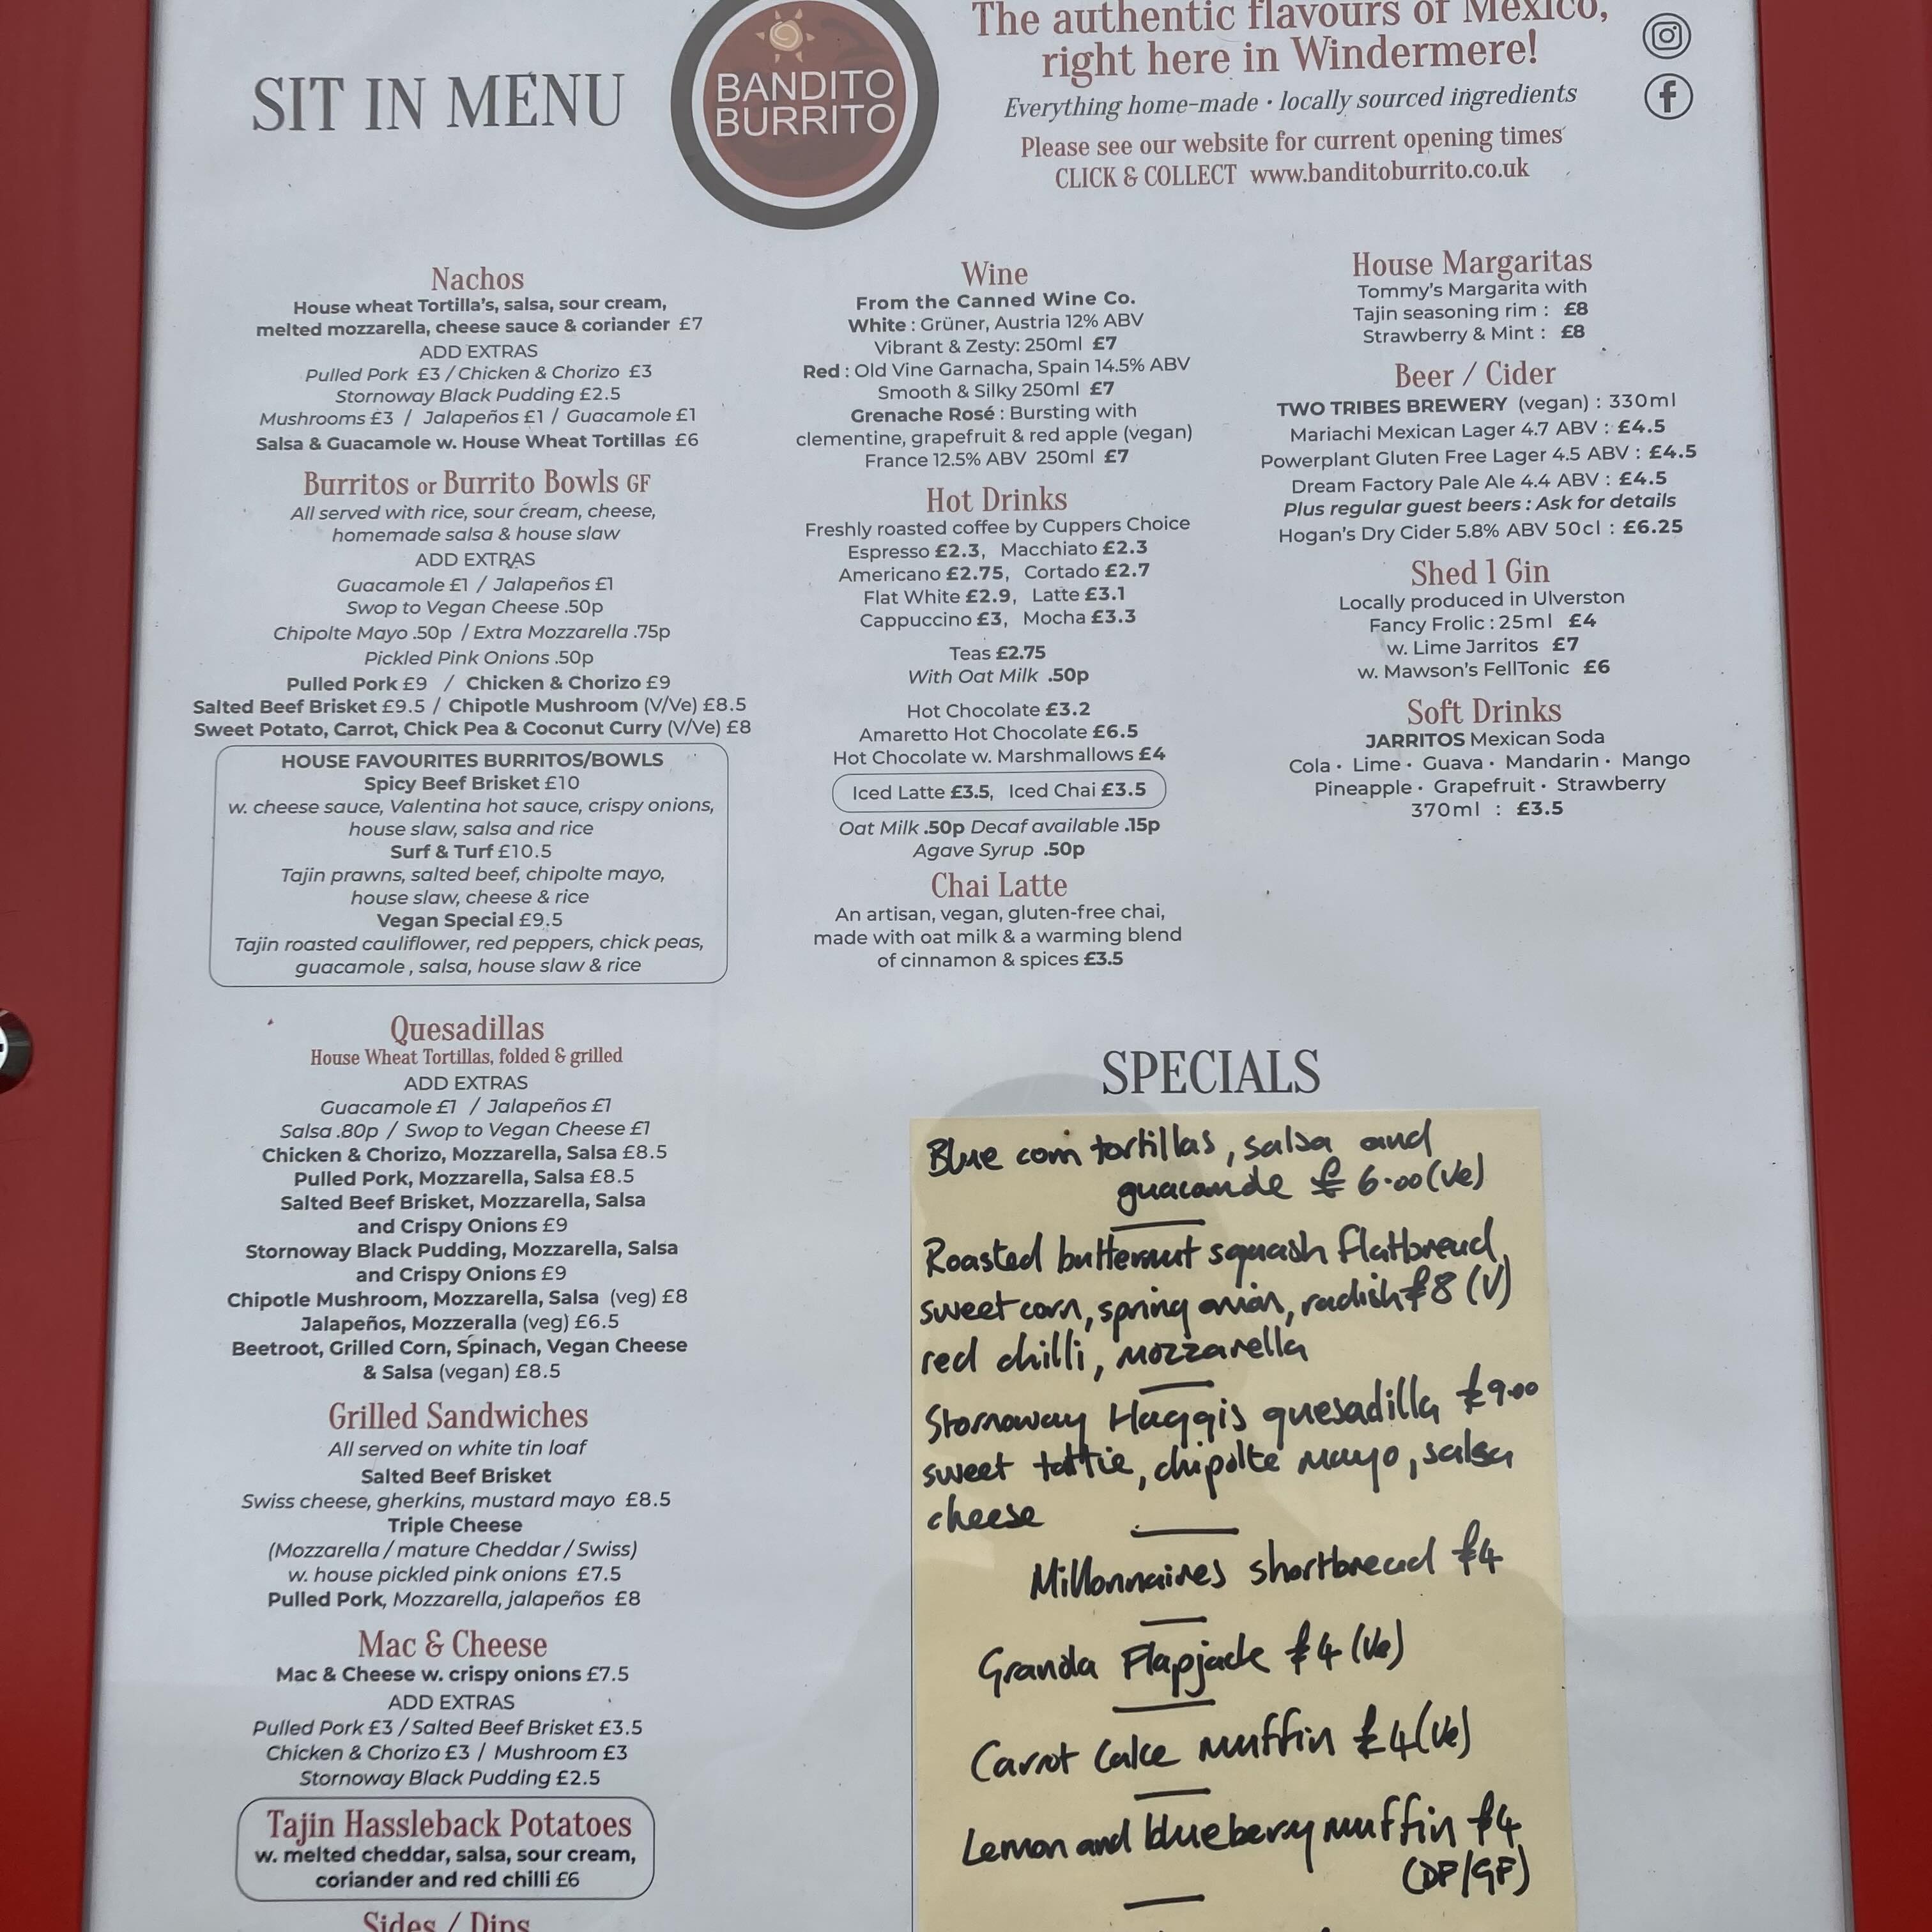 SIT IN MENU
BANDITO
BURRITO
The authentic flavours of Mexico,
right here in Windermere!
Everything home-made • locally sourced ingredients
Please see our website for current opening times
CLICK & COLLECT www.banditoburrito.co.uk
Nachos
House wheat Tortilla's, salsa, sour cream,
melted mozzarella, cheese sauce & coriander £7
ADD EXTRAS
Pulled Pork £3 / Chicken & Chorizo £3
Stornoway Black Pudding £2.5
Mushrooms £3 / Jalapeños £1 / Guacamole £1
Salsa & Guacamole w. House Wheat Tortillas £6
Burritos or Burrito Bowls GF
All served with rice, sour cream, cheese,
homemade salsa & house slaw
ADD EXTRAS
Guacamole £1 / Jalapeños £1
Swop to Vegan Cheese .50p
Chipolte Mayo .50p / Extra Mozzarella .75p
Pickled Pink Onions .50p
Pulled Pork £9 / Chicken & Chorizo £9
Salted Beef Brisket £9.5 / Chipotle Mushroom (V/Ve) £8.5
Sweet Potato, Carrot, Chick Pea & Coconut Curry (V/Ve) £8
HOUSE FAVOURITES BURRITOS/BOWLS
Spicy Beef Brisket £10
w. cheese sauce, Valentina hot sauce, crispy onions,
house slaw, salsa and rice
Surf & Turf £10.5
Tajin prawns, salted beef, chipolte mayo,
house slaw, cheese & rice
Vegan Special £9.5
Tajin roasted cauliflower, red peppers, chick peas,
guacamole , salsa, house slaw & rice
Quesadillas
House Wheat Tortillas, folded & grilled
ADD EXTRAS
Guacamole £1 / Jalapeños £1
Salsa .80p / Swop to Vegan Cheese £1
Chicken & Chorizo, Mozzarella, Salsa £8.5
Pulled Pork, Mozzarella, Salsa £8.5
Salted Beef Brisket, Mozzarella, Salsa
and Crispy Onions £9
Stornoway Black Pudding, Mozzarella, Salsa
and Crispy Onions £9
Chipotle Mushroom, Mozzarella, Salsa (veg) £8
Jalapeños, Mozzeralla (veg) £6.5
Beetroot, Grilled Corn, Spinach, Vegan Cheese
& Salsa (vegan) £8.5
Grilled Sandwiches
All served on white tin loaf
Salted Beef Brisket
Swiss cheese, gherkins, mustard mayo £8.5
Triple Cheese
(Mozzarella / mature Cheddar / Swiss)
w. house pickled pink onions £7.5
Pulled Pork, Mozzarella, jalapeños £8
Mac & Cheese
Mac & Cheese w. crispy onions £7.5
ADD EXTRAS
Pulled Pork £3 / Salted Beef Brisket £3.5
Chicken & Chorizo £3 / Mushroom £3
Stornoway Black Pudding £2.5
Tajin Hassleback Potatoes
w. melted cheddar, salsa, sour cream,
coriander and red chilli £6
Sides / Dips
Wine
From the Canned Wine Co.
White : Grüner, Austria 12% ABV
Vibrant & Zesty: 250ml £7
Red : Old Vine Garnacha, Spain 14.5% ABV
Smooth & Silky 250ml £7
Grenache Rosé : Bursting with
clementine, grapefruit & red apple (vegan)
France 12.5% ABV 250ml £7
Hot Drinks
Freshly roasted coffee by Cuppers Choice
Espresso £2.3, Macchiato £2.3
Americano £2.75, Cortado £2.7
Flat White £2.9, Latte £3.1
Cappuccino £3, Mocha £3.3
Teas £2.75
With Oat Milk .50p
Hot Chocolate £3.2
Amaretto Hot Chocolate £6.5
Hot Chocolate w. Marshmallows £4
Iced Latte £3.5, Iced Chai £3.5
Oat Milk .50p Decaf available .15p
Agave Syrup .50p
Chai Latte
An artisan, vegan, gluten-free chai,
made with oat milk & a warming blend
of cinnamon & spices £3.5
House Margaritas
Tommy's Margarita with
Tajin seasoning rim : £8
Strawberry & Mint : £8
Beer / Cider
TWO TRIBES BREWERY (vegan) : 330ml
Mariachi Mexican Lager 4.7 ABV : £4.5
Powerplant Gluten Free Lager 4.5 ABV : £4.5
Dream Factory Pale Ale 4.4 ABV : £4.5
Plus regular guest beers : Ask for details
Hogan's Dry Cider 5.8% ABV 50cl : £6.25
Shed 1 Gin
Locally produced in Ulverston
Fancy Frolic : 25ml £4
w. Lime Jarritos £7
w. Mawson's FellTonic £6
Soft Drinks
JARRITOS Mexican Soda
Cola • Lime • Guava • Mandarin • Mango
Pineapple • Grapefruit • Strawberry
370ml : £3.5
SPECIALS
Blue corn tortillas, salsa and
guacamole £ 6.00 (Ve)
Roasted butternut squash flatbread,
sweetcorn, spring onion, radish £8 (V)
red chilli, mozzarella
Stornoway Haggis quesadilla £9.00
sweet tattie, chipolte mayo, salsa
cheese
Millonnaires shortbread £4
Granola Flapjack £4 (Ve)
Carrot Cake muffin £4 (Ve)
Lemon and blueberry muffin £4
(DF/GF)